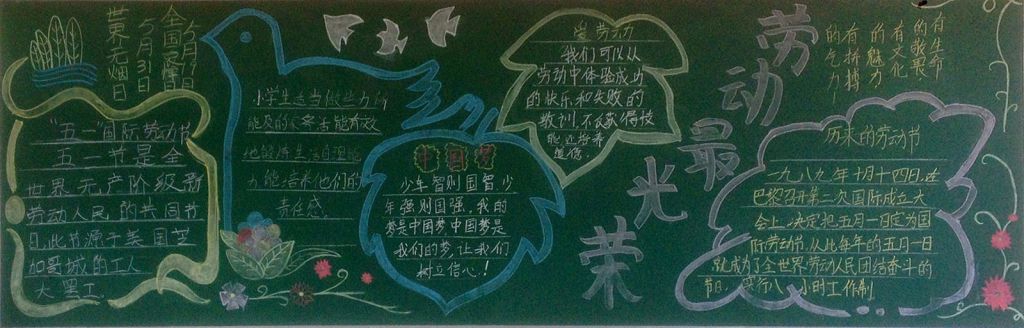 世界无烟日
5月31日
"五一国际劳动节
五一节是全
世界无产阶级
劳动人民的共同节
日,此节源于美国芝
加哥城的工人
大罢工
小学生适当做些力所
能及的
地锻炼生活自理能
力能培养他们的
责任感。
中国梦
少年智则国智少
年强则国强,我的
梦是中国梦中国梦是
我们的梦,让我们
树立信心!
爱劳动
我们可以从
劳动中体验成功
的快乐和失败的
教训,
劳动最光荣
有生命
的敬畏
有文化
的魅力
有拼搏
的气力
历来的劳动节
一九八九年十月十四日,在
巴黎召开第二次国际成立大
会上,决定把五月一日定为国
际劳动节,从此每年的五月一日
就成了全世界劳动人民团结奋斗的
节日,实行八小时工作制